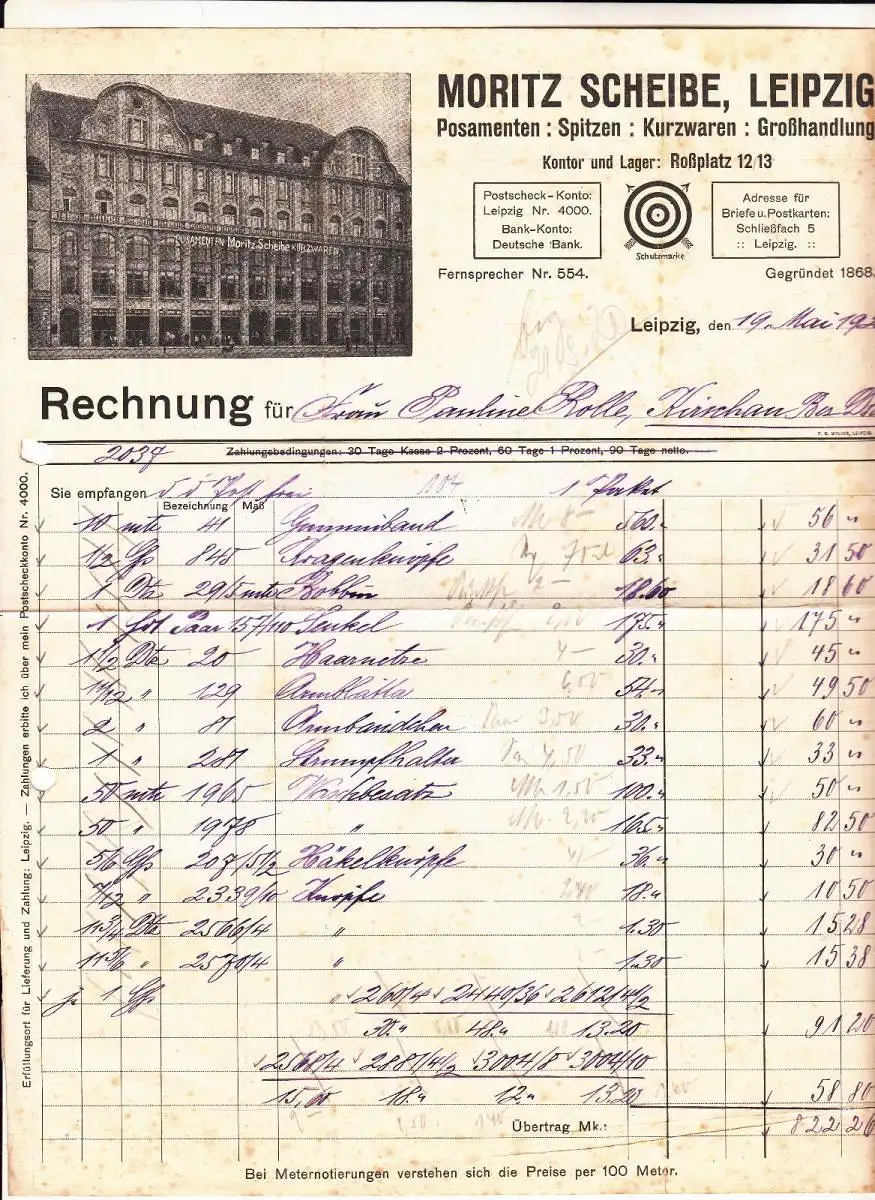 MORITZ SCHEIBE, LEIPZIG
Posamenten : Spitzen : Kurzwaren : Großhandlung
Kontor und Lager: Roßplatz 12/13
POSAMENTEN Moritz Scheibe KURZWAREN
Postscheck-Konto:
Leipzig Nr. 4000.
Bank-Konto:
Deutsche Bank.
Schutzmarke
Adresse für
Briefe u. Postkarten:
Schließfach 5
:: Leipzig. ::
Fernsprecher Nr. 554.
Gegründet 1868.
Leipzig, den 19. Mai 192
Rechnung für Frau Pauline Rolle, Kirschau Bez. D
Zahlungsbedingungen: 30 Tage Kasse 2 Prozent, 60 Tage 1 Prozent, 90 Tage netto.
Sie empfangen d. d. Post frei 1 Paket
Bezeichnung Maß
10 mtr 41 Gummiband 560.„ 56 „
1/2 Gß 845 Kragenknöpfe 63.„ 31 50
1 Dtz 29/5 mtr Bobbin 18.60 18 60
1 Paar 157/110 Senkel 175.„ 175 „
1 1/2 Dtz 20 Haarnetze 30.„ 45 „
11/12 „ 129 Armblätter 54.„ 49 50
2 „ 81 Armbändchen 30.„ 60 „
1 „ 281 Strumpfhalter 33.„ 33 „
50 mtr 1965 Waschbesatz 100.„ 50 „
50 „ 1978 „ 165.„ 82 50
5/6 Gß 207/5 1/2 Häkelknöpfe 36.„ 30 „
7/12 „ 2339/10 Knöpfe 18.„ 10 50
11 3/4 Dtz 2566/4 „ 1.30 15 28
11 5/6 „ 2570/4 „ 1.30 15 38
je 1 Gß „ 260/4 2440/36 2612/4 1/2
30.„ 48.„ 13.20 91 20
2568/4 2881/4 1/2 3004/8 3004/10
15.60 18.„ 12.„ 13.20 58 80
Übertrag Mk.: 822 26
Bei Meternotierungen verstehen sich die Preise per 100 Meter.
Erfüllungsort für Lieferung und Zahlung: Leipzig. — Zahlungen erbitte ich über mein Postscheckkonto Nr. 4000.